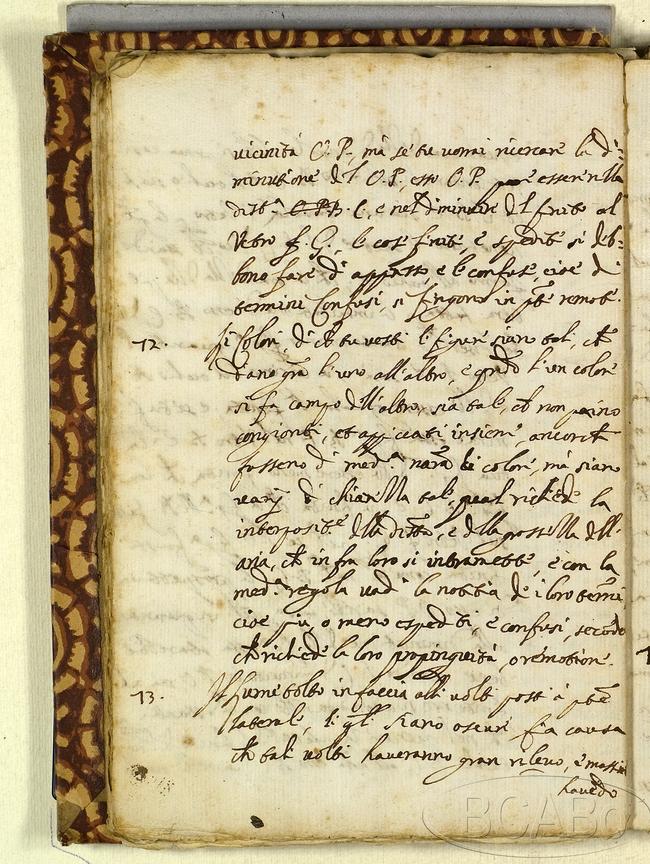 vicinità O. P., mà se tu vorrai ricercare la di=
minutione del O.P., esso O.P. pare esser nella
ditta O.P.P. C., e nel diminuire del finito al
Vetro f. G. le cose finite, e spedite si deb=
bono fare di appresso, e le confuse, cioè di
termini Confusi, si fingono in pte remote.
12. Li Colori, di che tu vesti le figure siano tali, che
diano gra. l'uno all'altro, e qndo l'un colore
si fa campo dell'altro, sia tale, che non paino
congionti, et appiccati insieme, ancorche
fusseno di meda. nara. di colori, mà siano
varij di chiarezza tale, qual richiede la
interposite. della ditta, e della grossezza dell'
aria, che infra loro si intramette, e con la
meda. regola vadi la notitia de i loro termi
cioe piu, o meno espediti, e confusi, secondo
che richiede la loro propinquità, o remotione.
13. Il lume tolto in faccia alli volti posti à pte
laterale, li qli. siano oscuri fia causa
che tali volti haveranno gran rilevo, e massie
havedo
BCABo